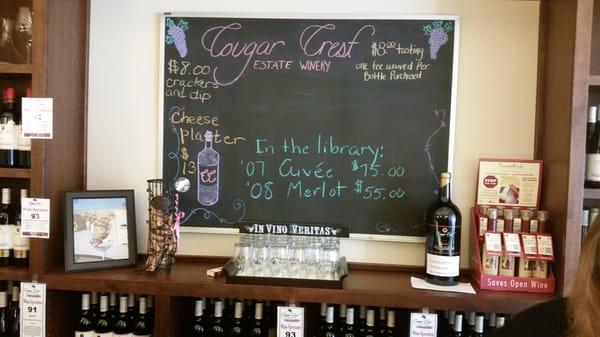 Cougar Crest
ESTATE WINERY
$8.00 tasting
one fee waived Per
Bottle Purchased
$8.00
crackers
and dip
Cheese
Platter
$
13
CC
In the library:
'07 Cuvée $75.00
'08 Merlot $55.00
IN VINO VERITAS
93
91
93
Saves Open Wine